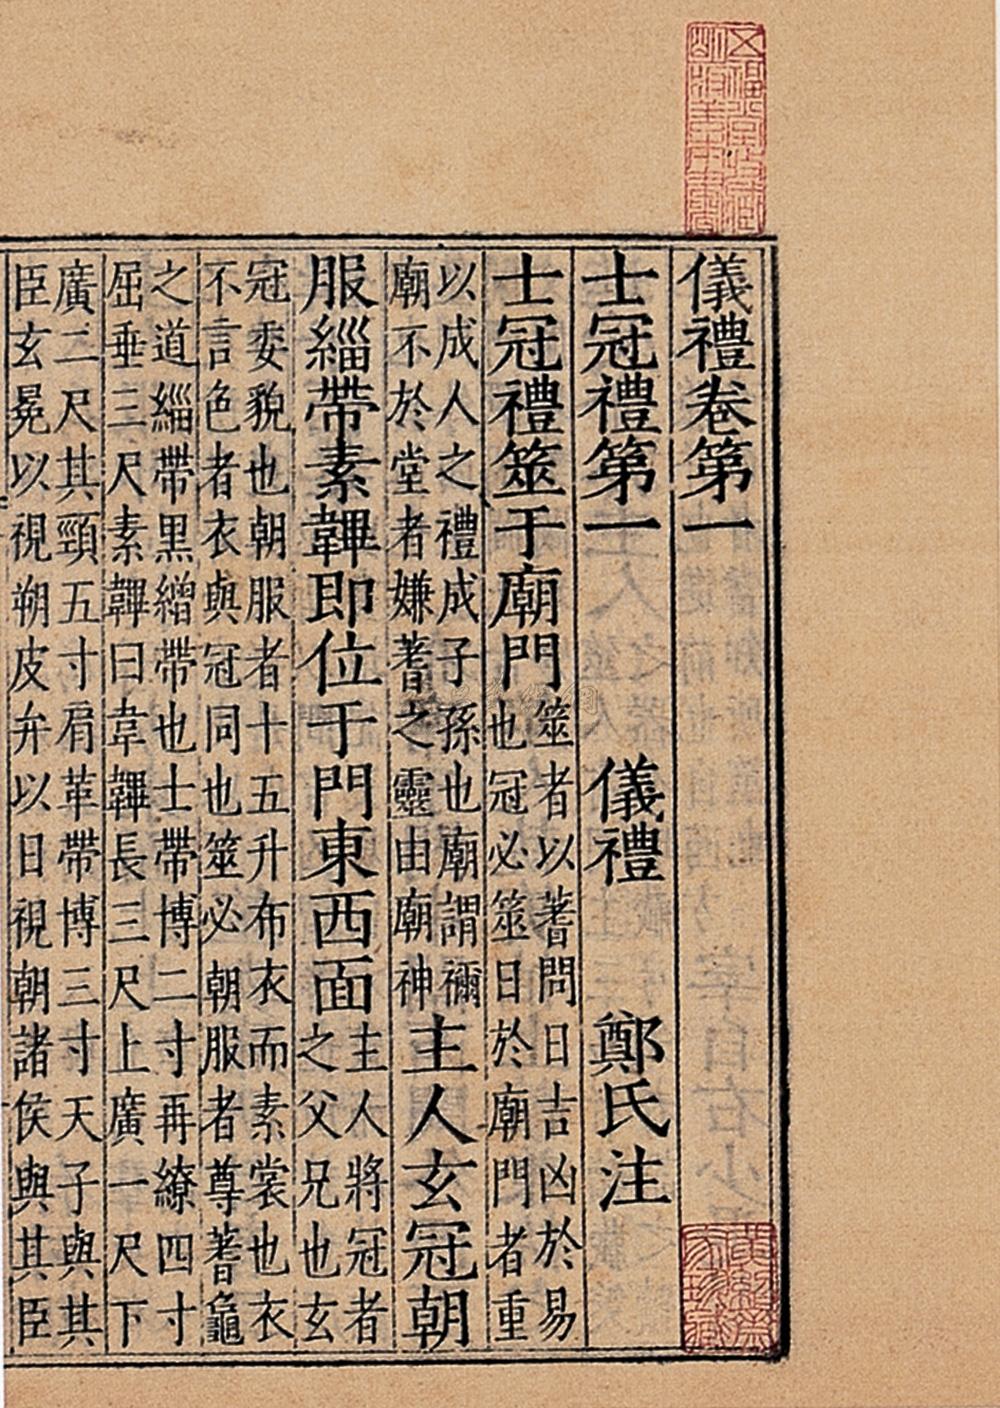 儀禮卷第一
士冠禮第一 儀禮 鄭氏注
士冠禮筮于廟門筮者以蓍問日吉凶於易也冠必筮日於廟門者重
以成人之禮成子孫也廟謂禰廟不於堂者嫌蓍之靈由廟神主人玄冠朝
服緇帶素韠即位于門東西面主人將冠者之父兄也玄
冠委貌也朝服者十五升布衣而素裳也衣不言色者衣與冠同也筮必朝服者尊蓍龜
之道緇帶黑繒帶也士帶博二寸再繚四寸屈垂三尺素韠曰韋韠長三尺上廣一尺下
廣二尺其頸五寸肩革帶博三寸天子與其臣玄冕以視朔皮弁以日視朝諸侯與其臣